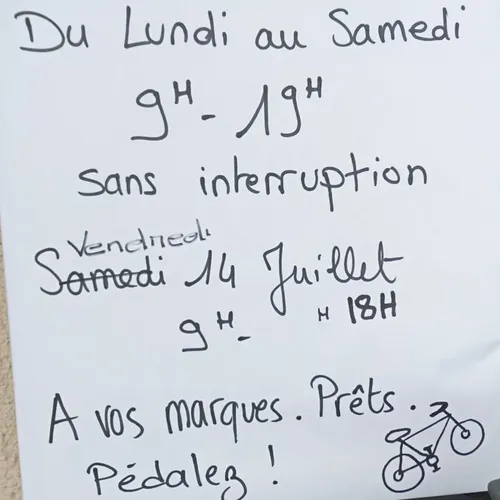 Du Lundi au Samedi
9H - 19H
sans interruption
Vendredi
Samedi 14 Juillet
9H - H 18H
A vos marques. Prêts.
Pédalez !